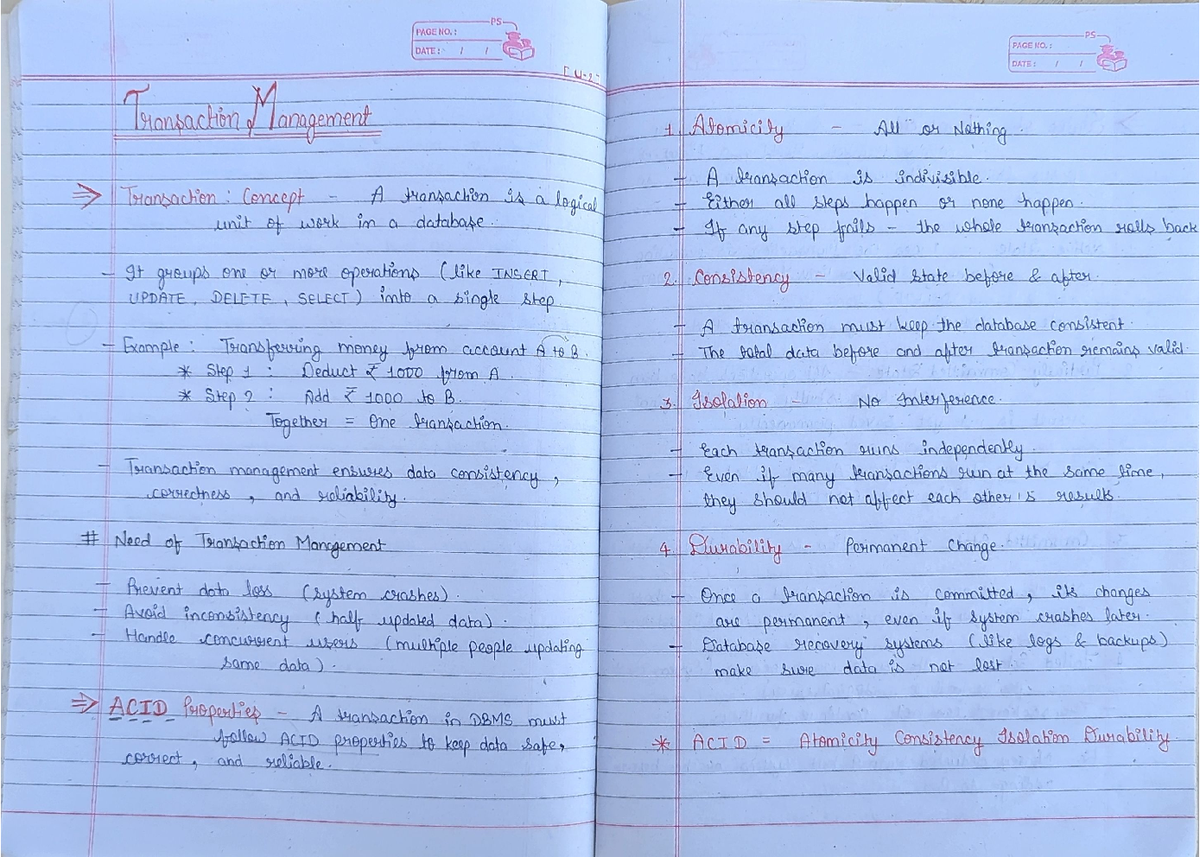 PS
PAGE NO.:
DATE: / /
[U-2]
Transaction Management
⇒ Transaction : Concept - A transaction is a logical
unit of work in a database.
- It groups one or more operations (like INSERT,
UPDATE, DELETE, SELECT) into a single step.
- Example : Transferring money from account A to B.
* Step 1 : Deduct ₹ 1000 from A.
* Step 2 : Add ₹ 1000 to B.
Together = One transaction.
- Transaction management ensures data consistency,
correctness, and reliability.
# Need of Transaction Management
- Prevent data loss (system crashes).
- Avoid inconsistency (half updated data).
- Handle concurrent users (multiple people updating
same data).
⇒ ACID Properties - A transaction in DBMS must
follow ACID properties to keep data safe,
correct, and reliable.
PS
PAGE NO.:
DATE: / /
1. Atomicity - All or Nothing.
- A transaction is indivisible.
- Either all steps happen or none happen.
- If any step fails - the whole transaction rolls back
2. Consistency - Valid state before & after.
- A transaction must keep the database consistent.
- The total data before and after transaction remains valid.
3. Isolation - No Interference.
- Each transaction runs independently.
- Even if many transactions run at the same time,
they should not affect each other's results.
4. Durability - Permanent Change.
- Once a transaction is committed, its changes
are permanent, even if system crashes later.
- Database recovery systems (like logs & backups)
make sure data is not lost
* ACID = Atomicity Consistency Isolation Durability.